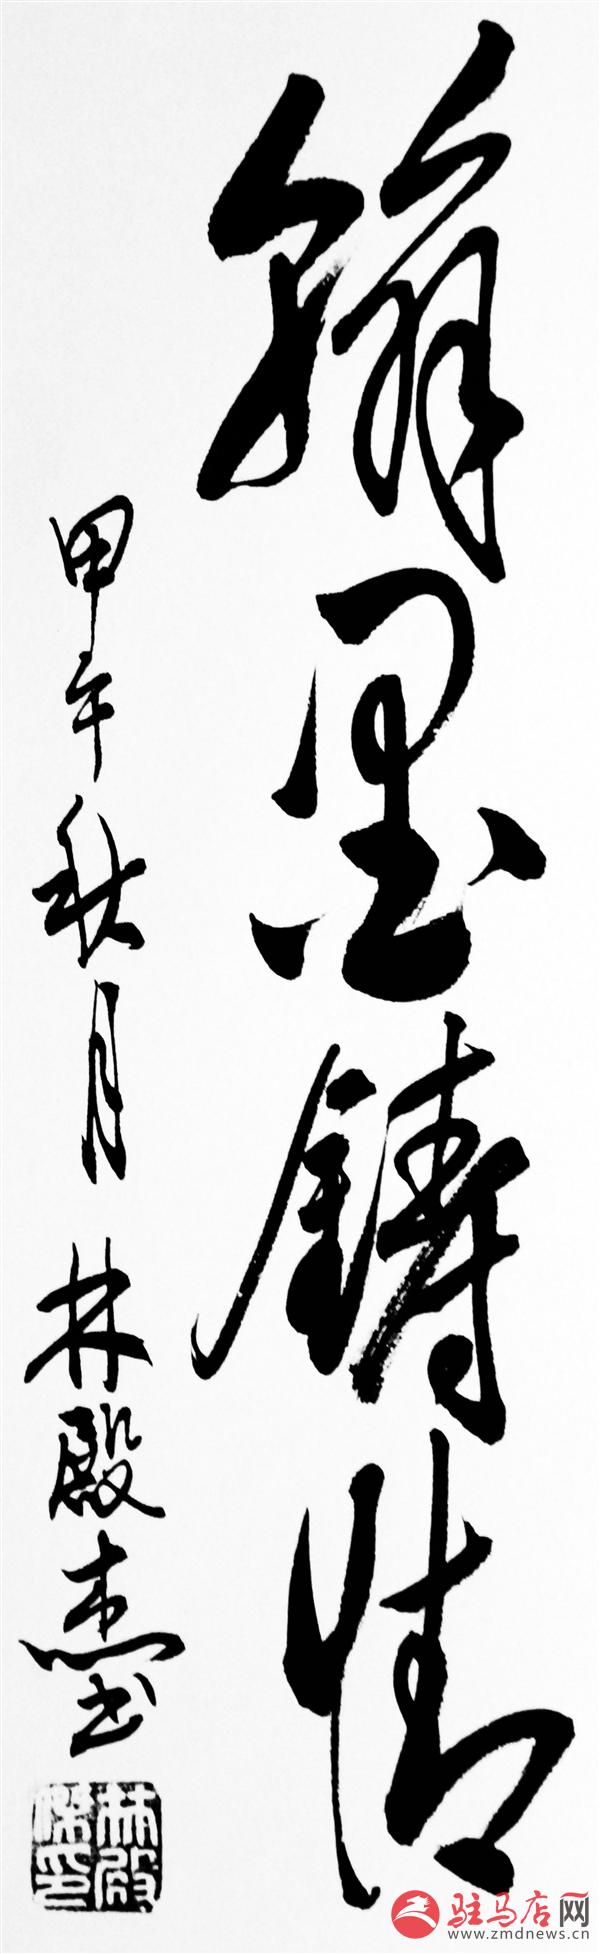 翰墨铸情
甲午秋月 林殿杰书
林殿傑印
驻马店网
www.zmdnews.cn